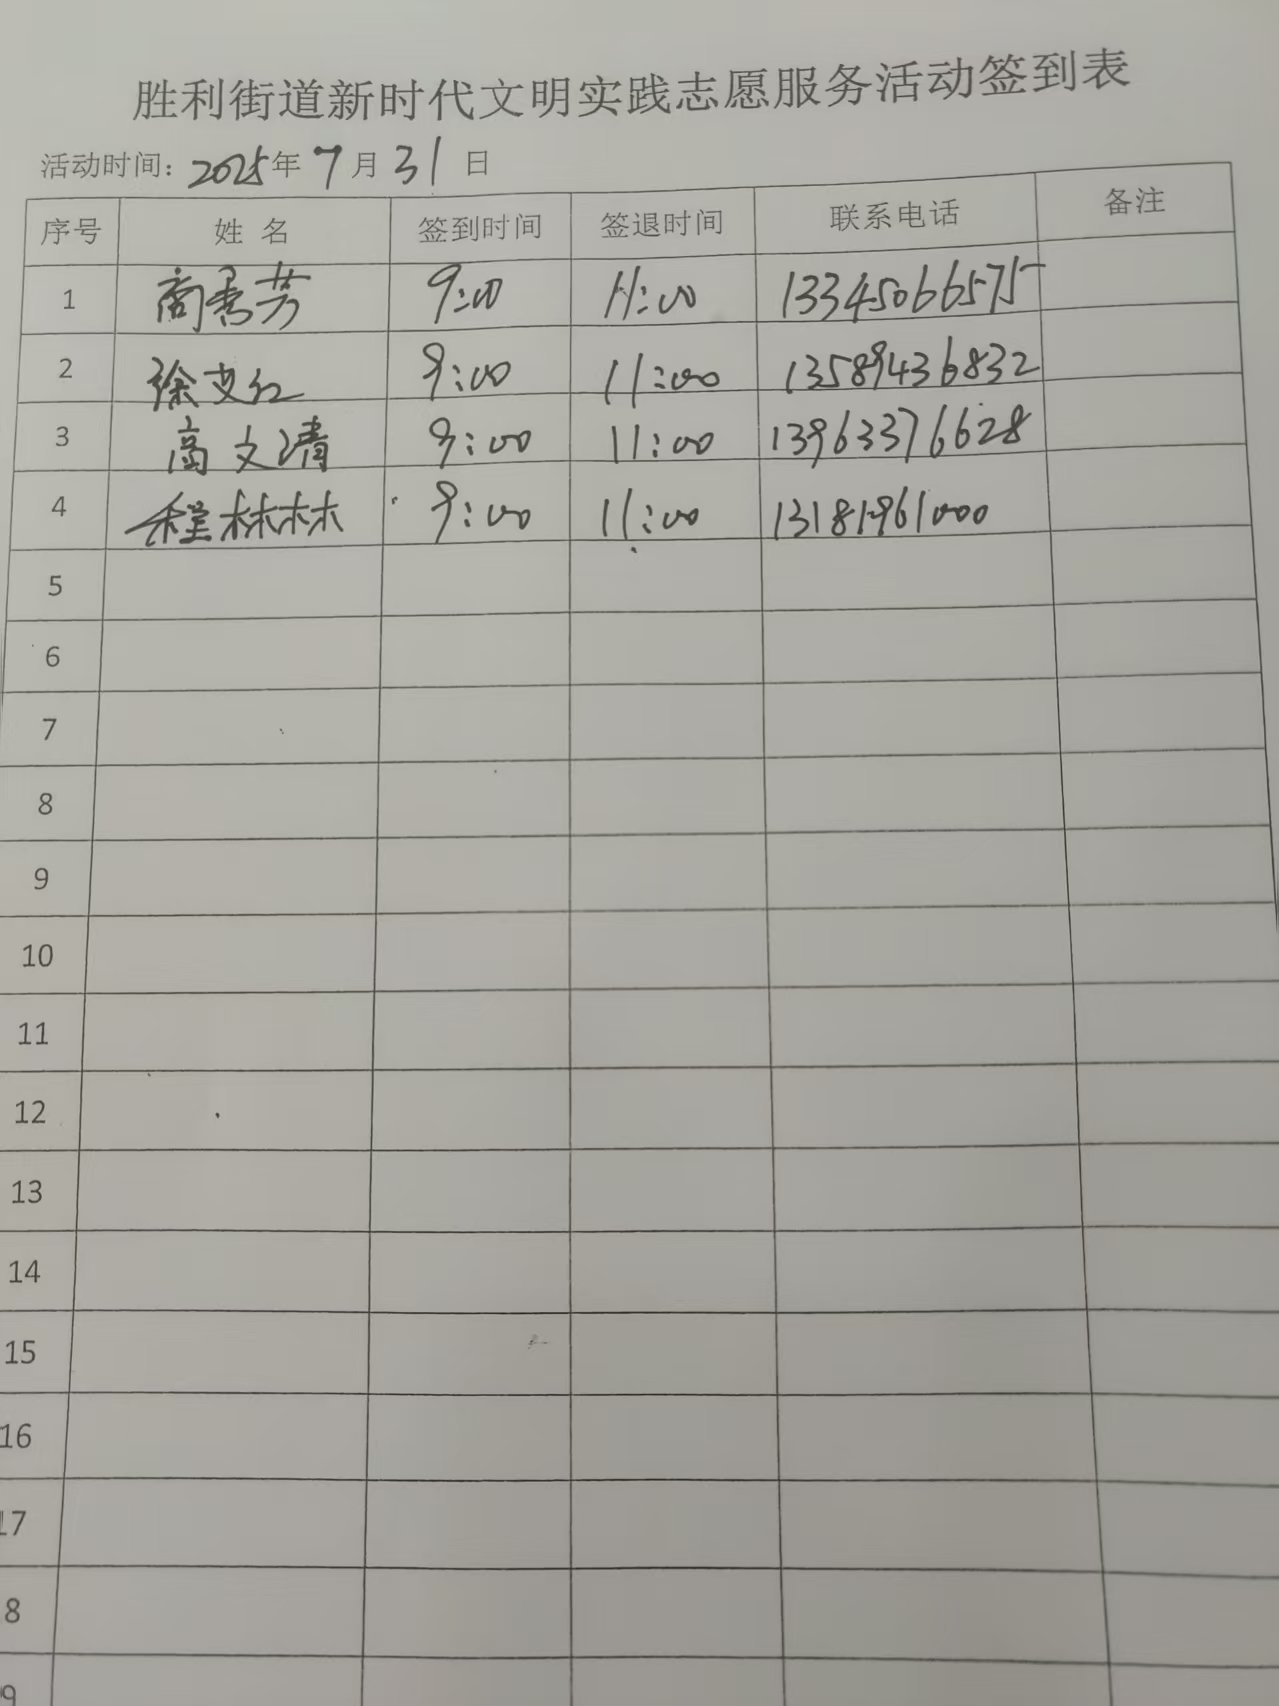 胜利街道新时代文明实践志愿服务活动签到表
活动时间：2025年7月31日
序号 姓 名 签到时间 签退时间 联系电话 备注
1 商秀芳 9:00 11:00 13345066575
2 徐艾红 9:00 11:00 13589436832
3 高文清 9:00 11:00 13963376628
4 程林林 9:00 11:00 13181961000
5
6
7
8
9
10
11
12
13
14
15
16
17
8
9